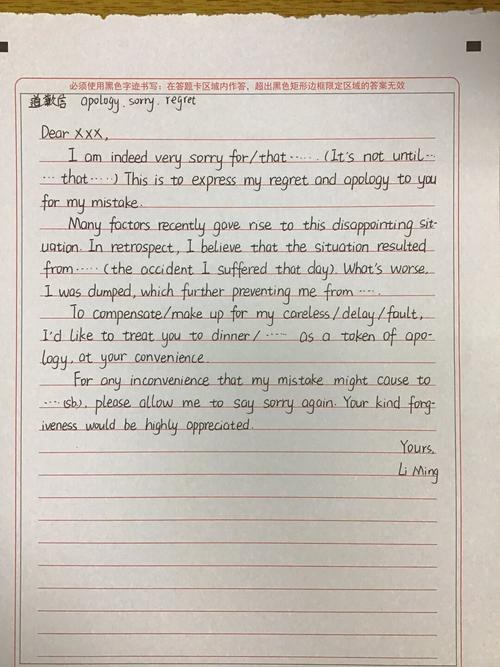 必须使用黑色字迹书写：在答题卡区域内作答，超出黑色矩形边框限定区域的答案无效
道歉信 apology. sorry. regret
Dear XXX,
I am indeed very sorry for/that ······. (It's not until···
··· that·····) This is to express my regret and apology to you
for my mistake.
Many factors recently gave rise to this disappointing sit-
uation. In retrospect, I believe that the situation resulted
from····· (the accident I suffered that day). What's worse,
I was dumped, which further preventing me from ····.
To compensate/make up for my careless/delay/fault,
I'd like to treat you to dinner/ ····· as a token of apo-
logy, at your convenience.
For any inconvenience that my mistake might cause to
····(sb), please allow me to say sorry again. Your kind forg-
iveness would be highly appreciated.
Yours,
Li Ming